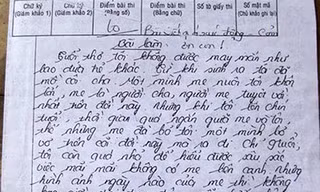 Chữ ký Chữ ký Điểm bài thi Điểm bài thi Số tờ giấy thi Số mật mã
(Giám khảo 1) (Giám khảo 2) (Bằng số) (Bằng chữ) (Chủ khảo ghi
Bài làm ơn con!
Tuổi thơ tôi không được may mắn như
bao đứa trẻ khác. Từ khi sinh ra tôi đã
mồ côi cha. Một mình mẹ nuôi tôi khôn
lớn, mẹ là người cha, người mẹ tuyệt vời
nhất trên đời này nhưng khi tôi lên chín
tuổi, thời gian quá ngắn người mẹ và tôi,
thế nhưng mẹ đã bỏ tôi một mình bơ
vơ trên cõi đời này mà ra đi. Chỉ 9 tuổi,
tôi còn quá nhỏ để hiểu được sâu sắc
việc mãi mãi không có mẹ bên cạnh nhưng
hình ảnh ngày nào của mẹ thì không